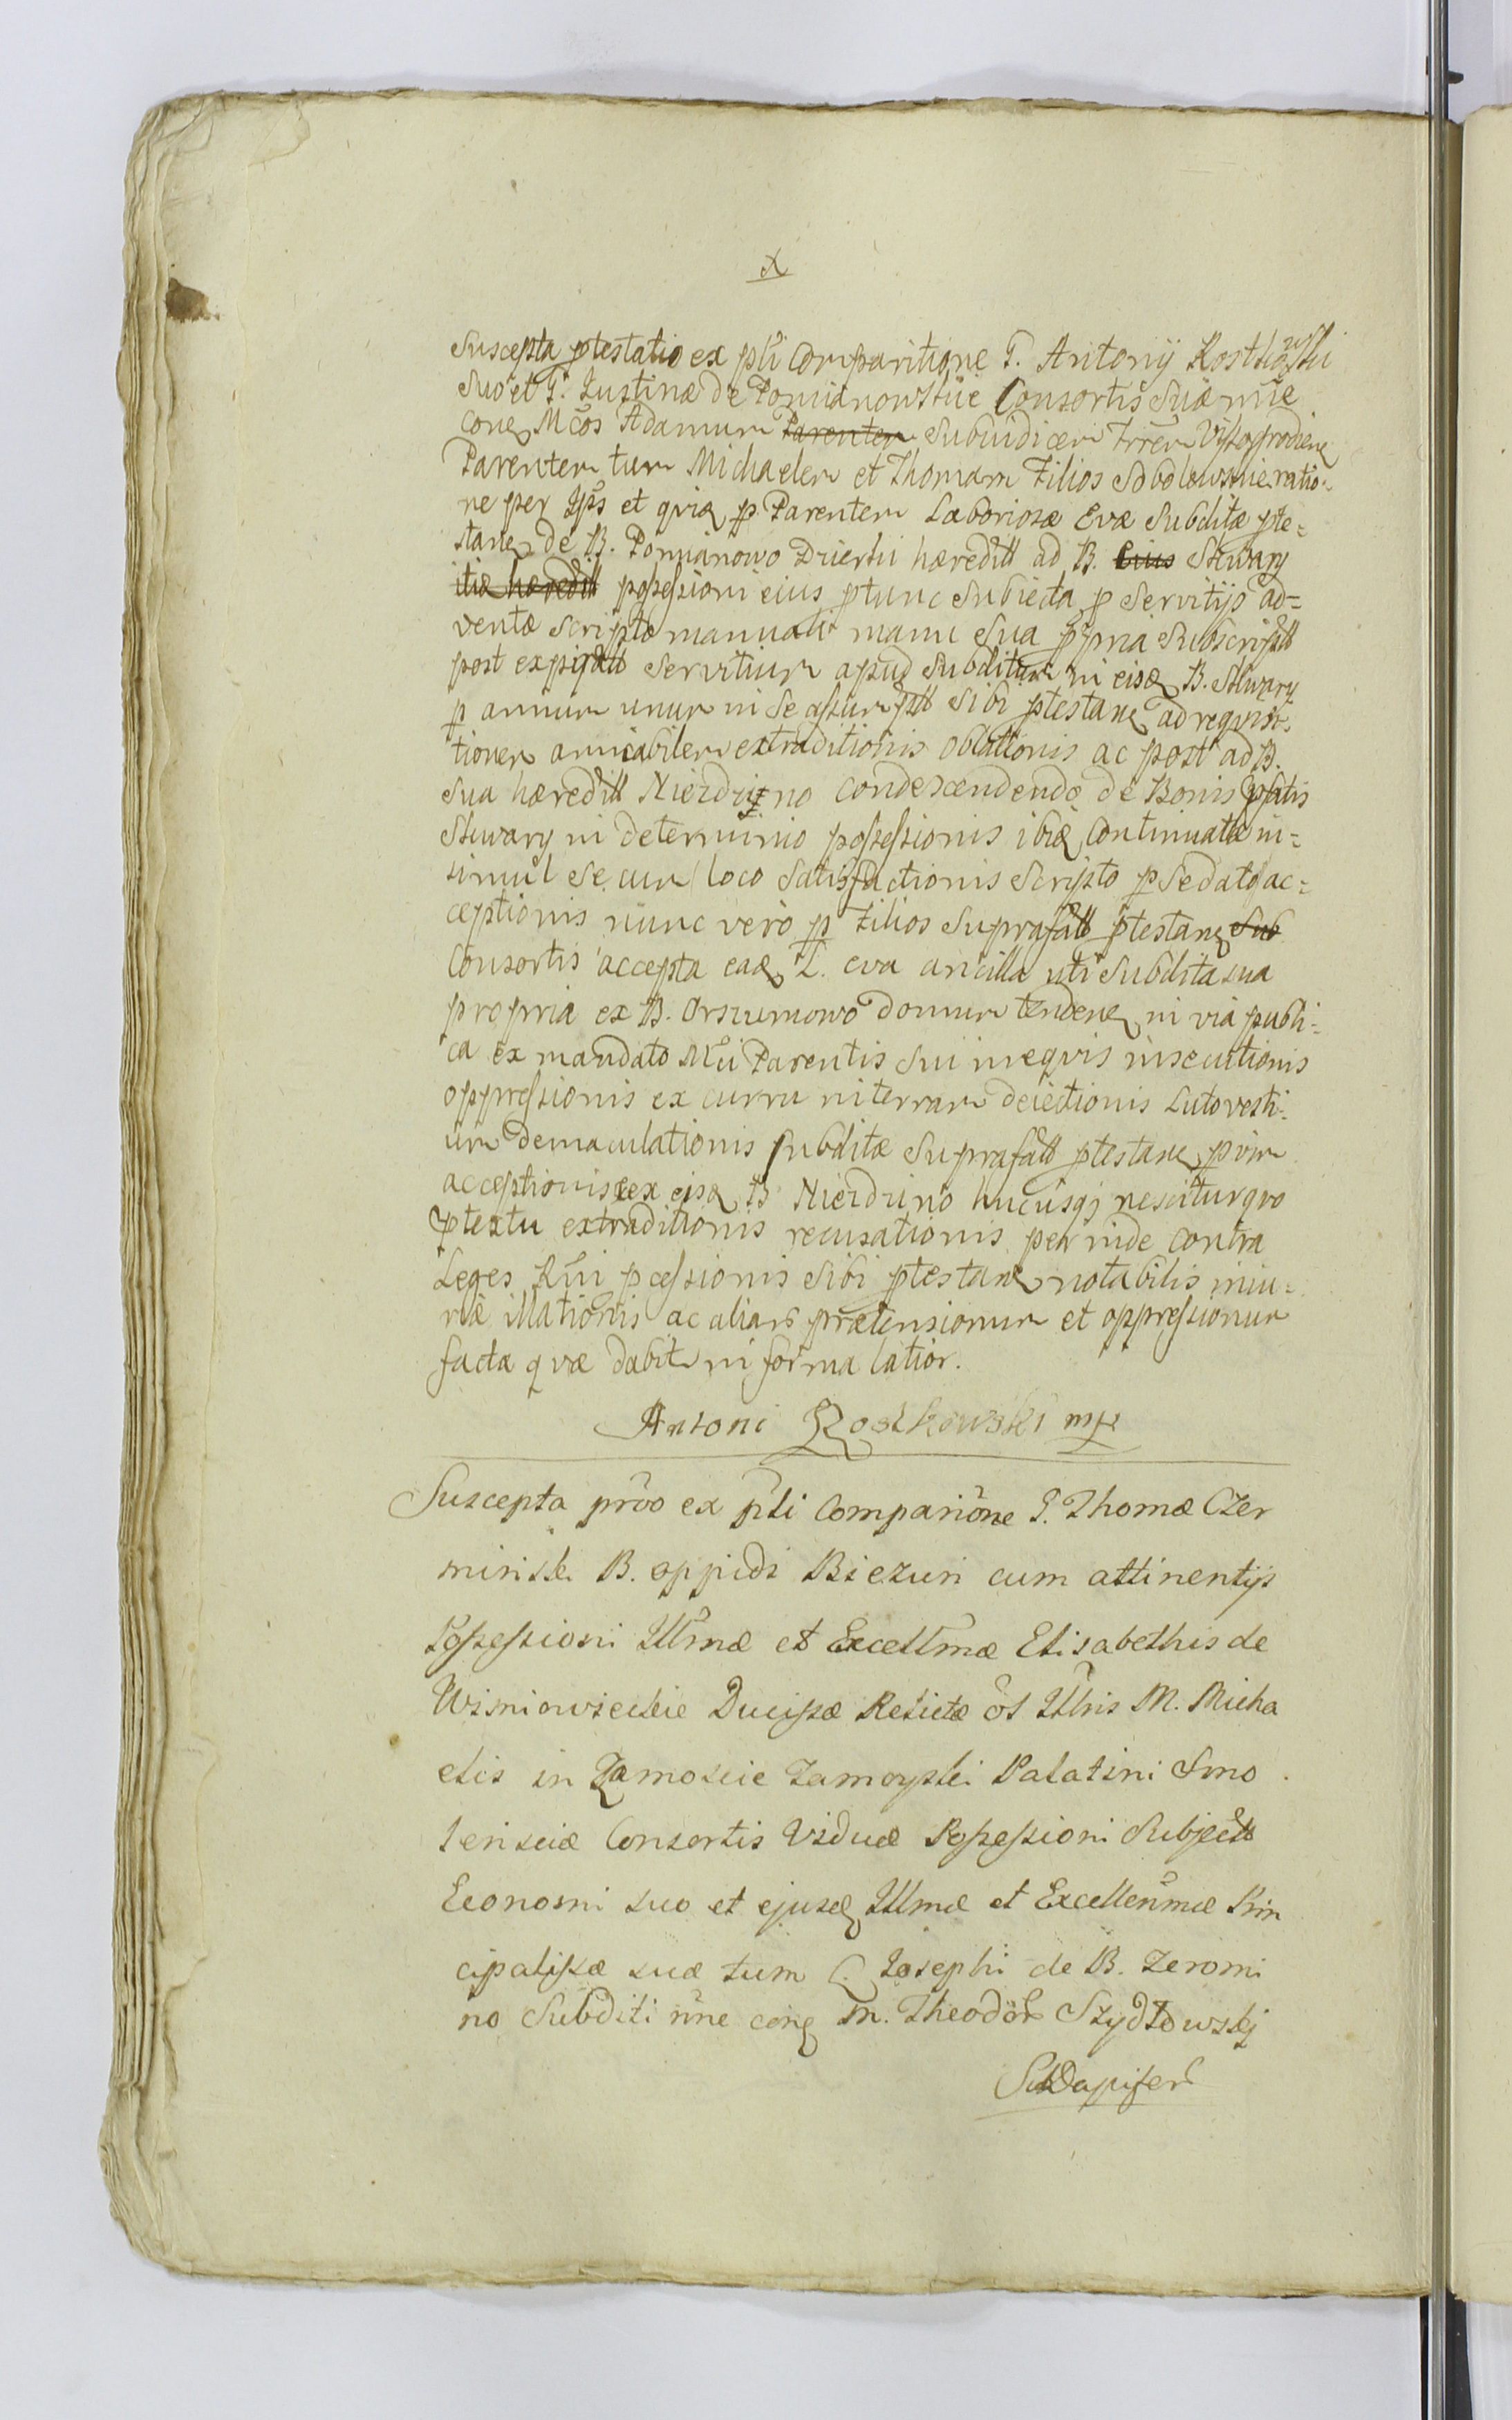 x
Suscepta ptestatio ex pti Comparitione G. Antonij Rostkowski
Suo et G. Justinæ de Pomianowskie Consortis Suæ nne
cone Mcos Adamum Parentem Subiudicem Trrem Wyszogrodiens
Parentem tum Michaelem et Thomam Filios Sobolewskie ratio-
ne per Ips et quia p Parentem Laboriosæ Evæ Subditæ pte-
stans de B. Pomianowo Dzierki hæredit ad B. Eius Slwary
hæredit possessioni eius ptunc Subiecta p Servitijs ad-
ventæ Scripto manuali manu Sua ppria Subscript
post expirat Servitium apud Subditum in eisd B. Slwary
p annum unum in Se assumpt Sibi ptestans ad requisi-
tionem amicabilem extraditionis oblationis ac post ad B.
Sua hæredit Niedrzno condescendendo de Bonis psatis
Slwary in determinio possessionis ibid continuatæ in-
simul Secum loco Satisfactionis Scripto p Se dato ac-
ceptionis nunc vero p Filios Suprafatt ptestans Sub
Consortis accepta ead L. eva ancilla uti Subdita sua
propria ex B. Orszumowo domum tendens in via publi-
ca ex mandato Mci Parentis Sui in equis insecutionis
oppressionis ex curru in terram deiectionis Luto vesti-
um demaculationis Subditæ Suprafatt ptestans p vim
acceptionis ex eisd B Niedrzno hucusq nescitur quo
ptextu extraditionis recusationis per inde contra
Leges Rni pcessionis Sibi ptestans notabilis iniu-
riæ illationis ac aliar prætensionum et oppressionum
facta quæ dabit in forma latior.
Antoni Rostkowski mp
Suscepta prõo ex pñti Comparõne G. Thomæ Czer
minski B. oppidi Biezun cum attinentijs
Possessioni Illmæ et Excellmæ Elisabethis de
Wisniowieckie Ducissæ Relictæ ol Illris M. Micha
elis in Zamoscie Zamoyski Palatini Smo
lensciæ Consortis Viduæ Possessioni Subject
Economi suo et ejusd Illmæ et Excellenmæ Prin
cipalissæ suæ tum L. Josephi de B. Zeromi
no Subditi nne cong M. Theodor Szydłowskj
SubDapifer